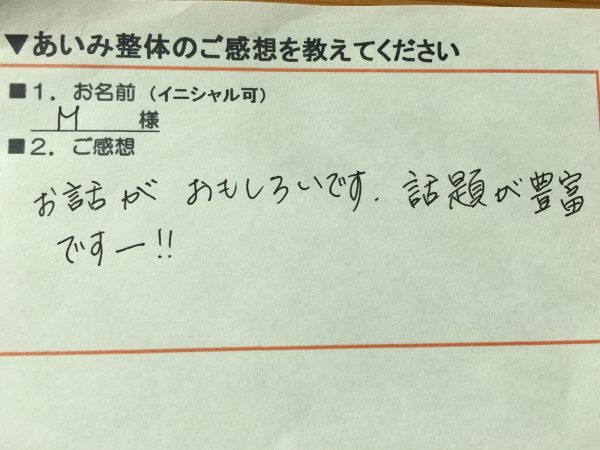 ▼あいみ整体のご感想を教えてください
■１．お名前（イニシャル可）
M 様
■２．ご感想
お話が おもしろいです. 話題が豊富
ですー!!